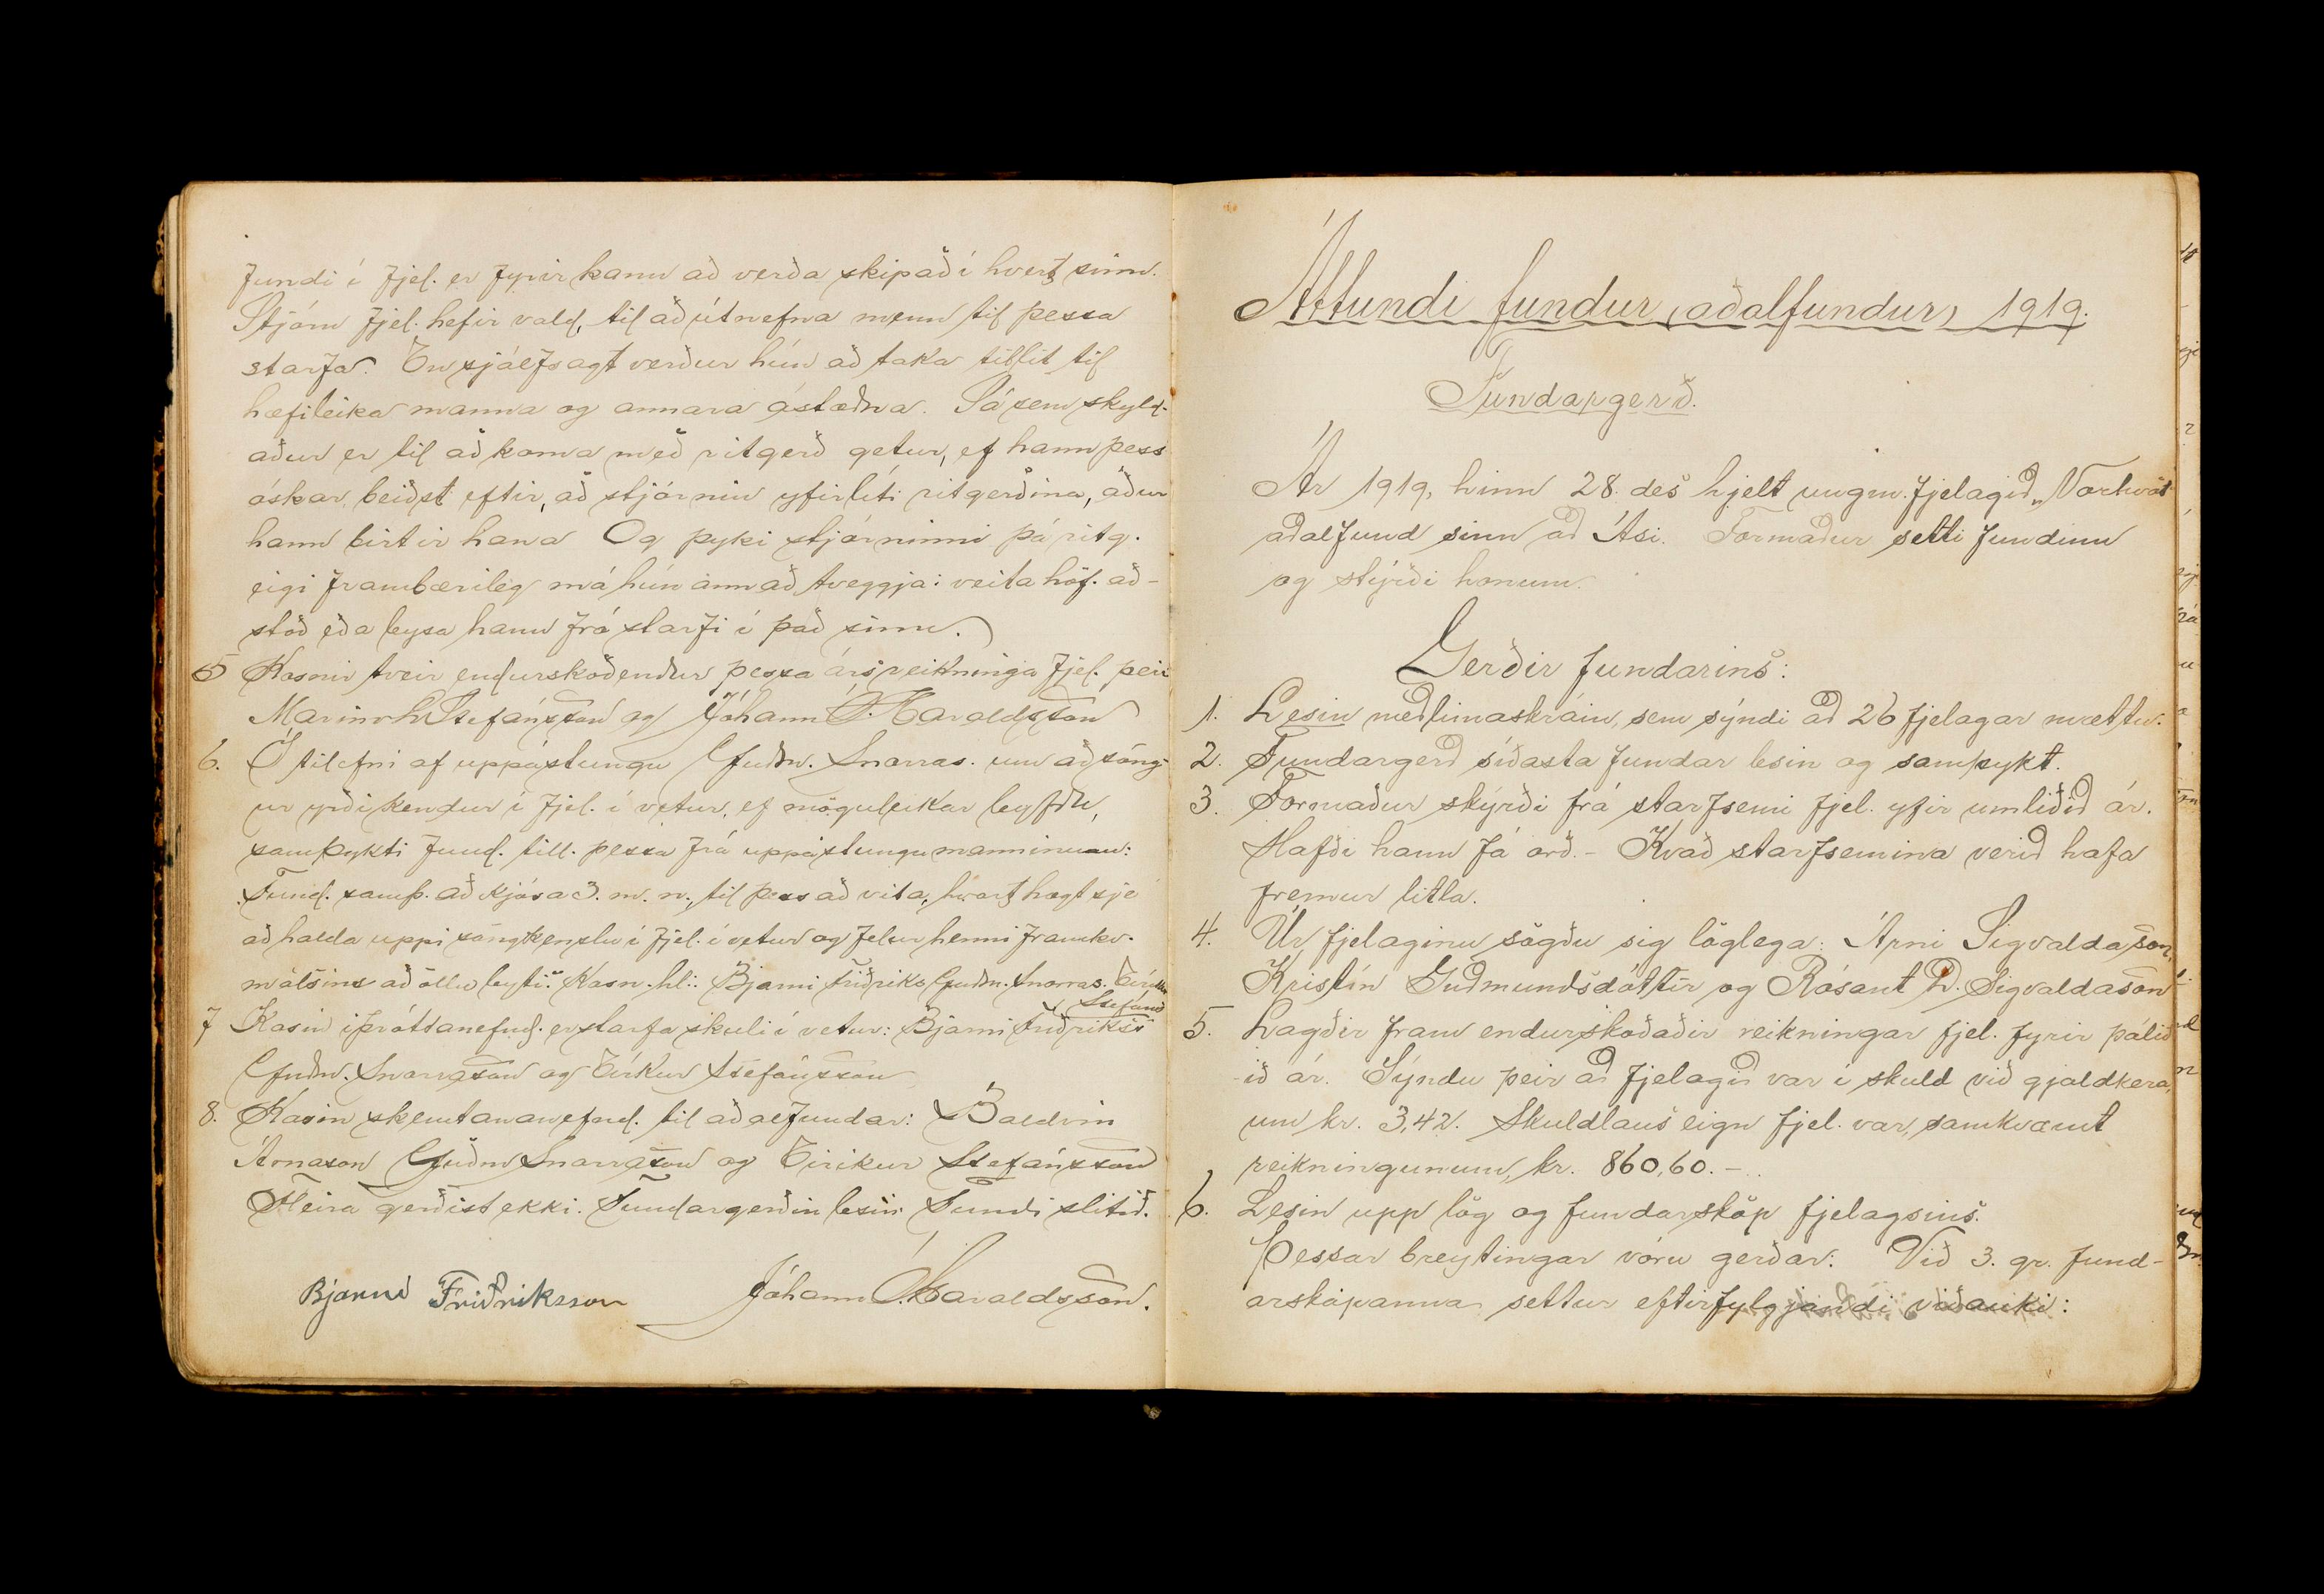 fundi í fjel. er fyrir kann að verða skipað í hvert sinn.
Stjórn fjel. hefir vald, til að útnefna menn til þessa
starfa. En sjálfsagt verður hún að taka tillit til
hæfileika manna og annara ástæðna. Sá sem skyld-
aður er til að koma með ritgerð getur, ef hann þess
óskar, beiðst eftir, að stjórnin yfirlíti ritgerðina, áður
hann birtir hana Og þyki stjórninni þá ritg.
eigi frambærileg má hún annað tveggja: veita höf. að-
stoð eða leysa hann frá starfi í það sinn.
5 Kosnir tveir endurskoðendur þessa ársreikninga fjel. þeir
Marinó L Stefánsson og Jóhann Ó. Haraldsson
6. Í tilefni af uppástungu Guðm. Snorras. um að söng-
ur yrði kendur í fjel. í vetur, ef möguleikar leyfðu,
samþykti fund. till. þessa frá uppástungumanninum:
Fund. samþ. að kjósa 3. m. n., til þess að vita, hvort hægt sje
að halda uppi söngkenslu í fjel. í vetur og felur henni framkv.
málsins að öllu leyti. Kosn. hl.: Bjarni Friðriks Guðm. Snorras. Eiríkur
Stefánss
7 Kosin íþróttanefnd. er starfa skuli í vetur: Bjarni Friðrikss
Guðm. Snorrason og Eirkur Stefánsson
8. Kosin skemtananefnd. til aðalfundar: Baldvin
Árnason Guðm Snorrason og Eirikur Stefánsson
Fleira gerðist ekki. Fundargerðin lesin Fundi slitið.
Bjarni Friðriksson Jóhann Ó. Haraldsson.
Áttundi fundur, (aðalfundur) 1919.
Fundargerð.
Ár 1919, hinn 28. des hjelt ungm.fjelagið „Vorhvöt"
aðalfund sinn að Ási. Formaður setti fundinn
og stýrði honum.
Gerðir fundarins:
1. Lesin meðlimaskráin, sem sýndi að 26 fjelagar mættu.
2. Fundargerð síðasta fundar lesin og samþykt.
3. Formaður skýrði frá starfsemi fjel. yfir umliðið ár.
Hafði hann fá orð. - Kvað starfsemina verið hafa
fremur litla.
4. Úr fjelaginu sögðu sig löglega: Árni Sigvaldason,
Kristín Guðmundsdóttir og Rósant Sigvaldason
5. Lagðir fram endurskoðaðir reikningar fjel. fyrir þálið
-ið ár. Sýndu þeir að fjelagið var í skuld við gjaldkera,
um kr. 3,42. Skuldlaus eign fjel. var, samkvæmt
reikningunum, kr. 860,60. -
6. Lesin upp lög og fundarsköp fjelagsins.
Þessar breytingar vóru gerðar: Við 3. gr. fund-
arskapanna settur eftirfylgjandi viðauki: